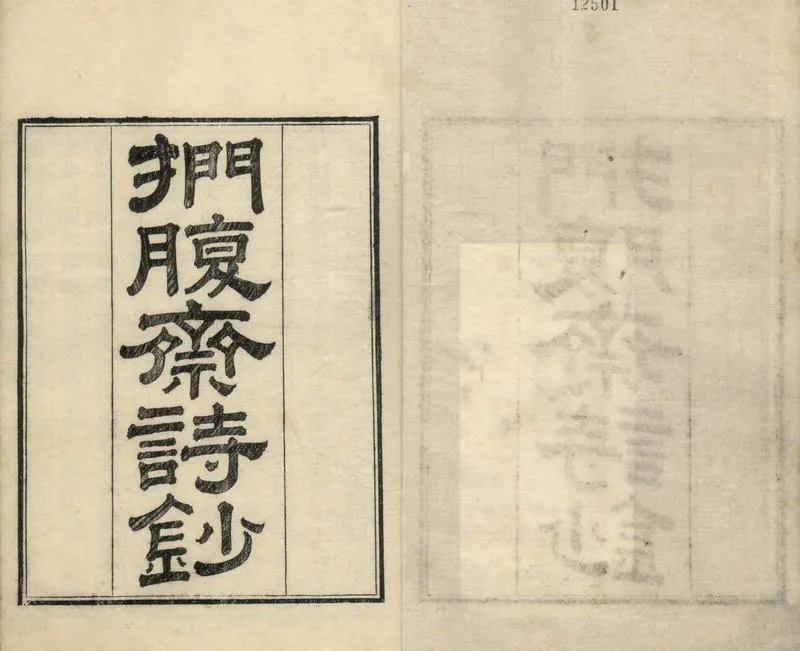 12501
捫腹齋詩鈔